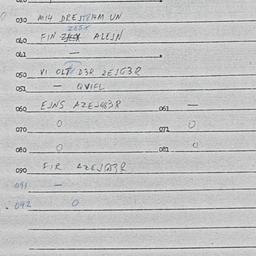 030 MIH DRESTEHM UN
040 FIN ALEJN
041 —
050 VI OLT D3R ZEJG3R
051 — QVIFL
060 EJNS AZEJGG3R 061 —
070 O 071 O
080 O 081 O
090 FIR AZEJGG3R
091 —
092 O